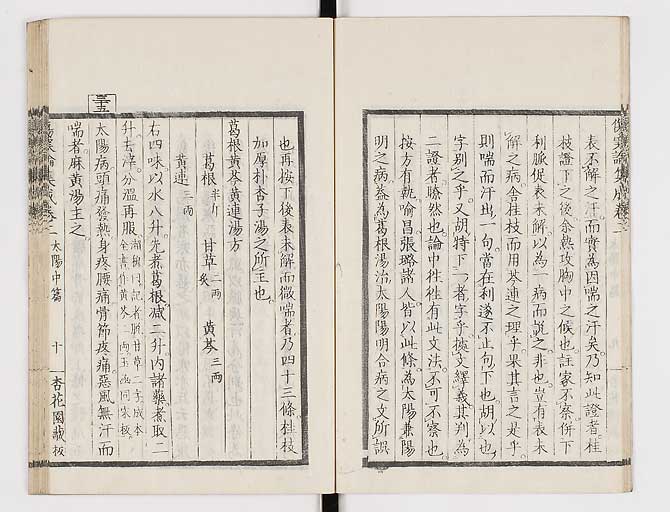 表不解之汗而實為因喘之汗矣乃知此證者桂
枝證下之後余熱攻胸中之候也註家不察併下
利脈促表未解以為一病而説之非也豈有表未
解之病舍桂枝而用芩連之理乎果其言之是乎
則喘而汗出一句當在利遂不止句下也胡以也
字別之乎又胡特下一者字乎據文繹義其判為
二證者瞭然也論中往往有此文法不可不察也
按方有執喻昌張璐諸人皆以此條為太陽兼陽
明之病益為葛根湯治太陽陽明合病之文所誤
也再按下後表未解而微喘者乃四十三條桂枝
加厚朴杏子湯之所主也
葛根黃芩黃連湯方
葛根半斤 甘草二兩炙 黃芩三兩
黃連三兩
右四味以水八升先煮葛根減二升內諸藥煮取二
升去滓分溫再服
三十五
太陽病頭痛發熱身疼腰痛骨節疼痛惡風無汗而
喘者麻黃湯主之
傷寒論集成卷二 太陽中篇 十 杏花園藏板